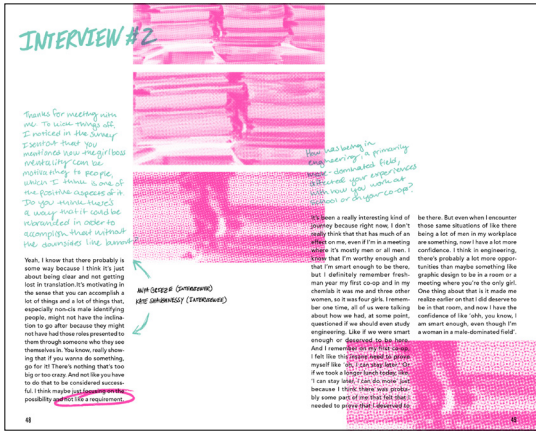 INTERVIEW #2
Thanks for meeting with
me. To kick things off,
I noticed in the survey
I sent out that you
mentioned how the girlboss
mentality can be
motivating to people,
which I think is one of
the positive aspects of it.
Do you think there's
a way that it could be
rebranded in order to
accomplish that without
the downsides like burnout?
Yeah, I know that there probably is
some way because I think it's just
about being clear and not getting
lost in translation. It's motivating in
the sense that you can accomplish a
lot of things and a lot of things that,
especially non-cis male identifying
people, might not have the inclina-
tion to go after because they might
not have had those roles presented to
them through someone who they see
themselves in. You know, really show-
ing that if you wanna do something,
go for it! There's nothing that's too
big or too crazy. And not like you have
to do that to be considered success-
ful. I think maybe just focusing on the
possibility and not like a requirement.
ANYA GREER (INTERVIEWER)
KATE SHAUGHNESSY (INTERVIEWEE)
How has being in
engineering, a primarily
male-dominated field,
affected your experiences
with how you work at
school or on your co-op?
It's been a really interesting kind of
journey because right now, I don't
really think that that has much of an
effect on me, even if I'm in a meeting
where it's mostly men or all men. I
know that I'm worthy enough and
that I'm smart enough to be there,
but I definitely remember fresh-
man year my first co-op and in my
chemlab it was me and three other
women, so it was four girls. I remem-
ber one time, all of us were talking
about how we had, at some point,
questioned if we should even study
engineering. Like if we were smart
enough or deserved to be here.
And I remember on my first co-op,
I felt like this insane need to prove
myself like 'oh, I can stay later.' Or
if we took a longer lunch today, like,
'I can stay later, I can do more' just
because I think there was proba-
bly some part of me that felt that I
needed to prove that I deserved to
be there. But even when I encounter
those same situations of like there
being a lot of men in my workplace
are something, now I have a lot more
confidence. I think in engineering,
there's probably a lot more oppor-
tunities than maybe something like
graphic design to be in a room or a
meeting where you're the only girl.
One thing about that is it made me
realize earlier on that I did deserve to
be in that room, and now I have the
confidence of like 'ohh, you know, I
am smart enough, even though I'm
a woman in a male-dominated field'.
48
49